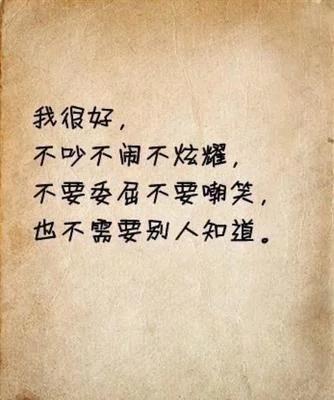 我很好，
不吵不闹不炫耀，
不要委屈不要嘲笑，
也不需要别人知道。